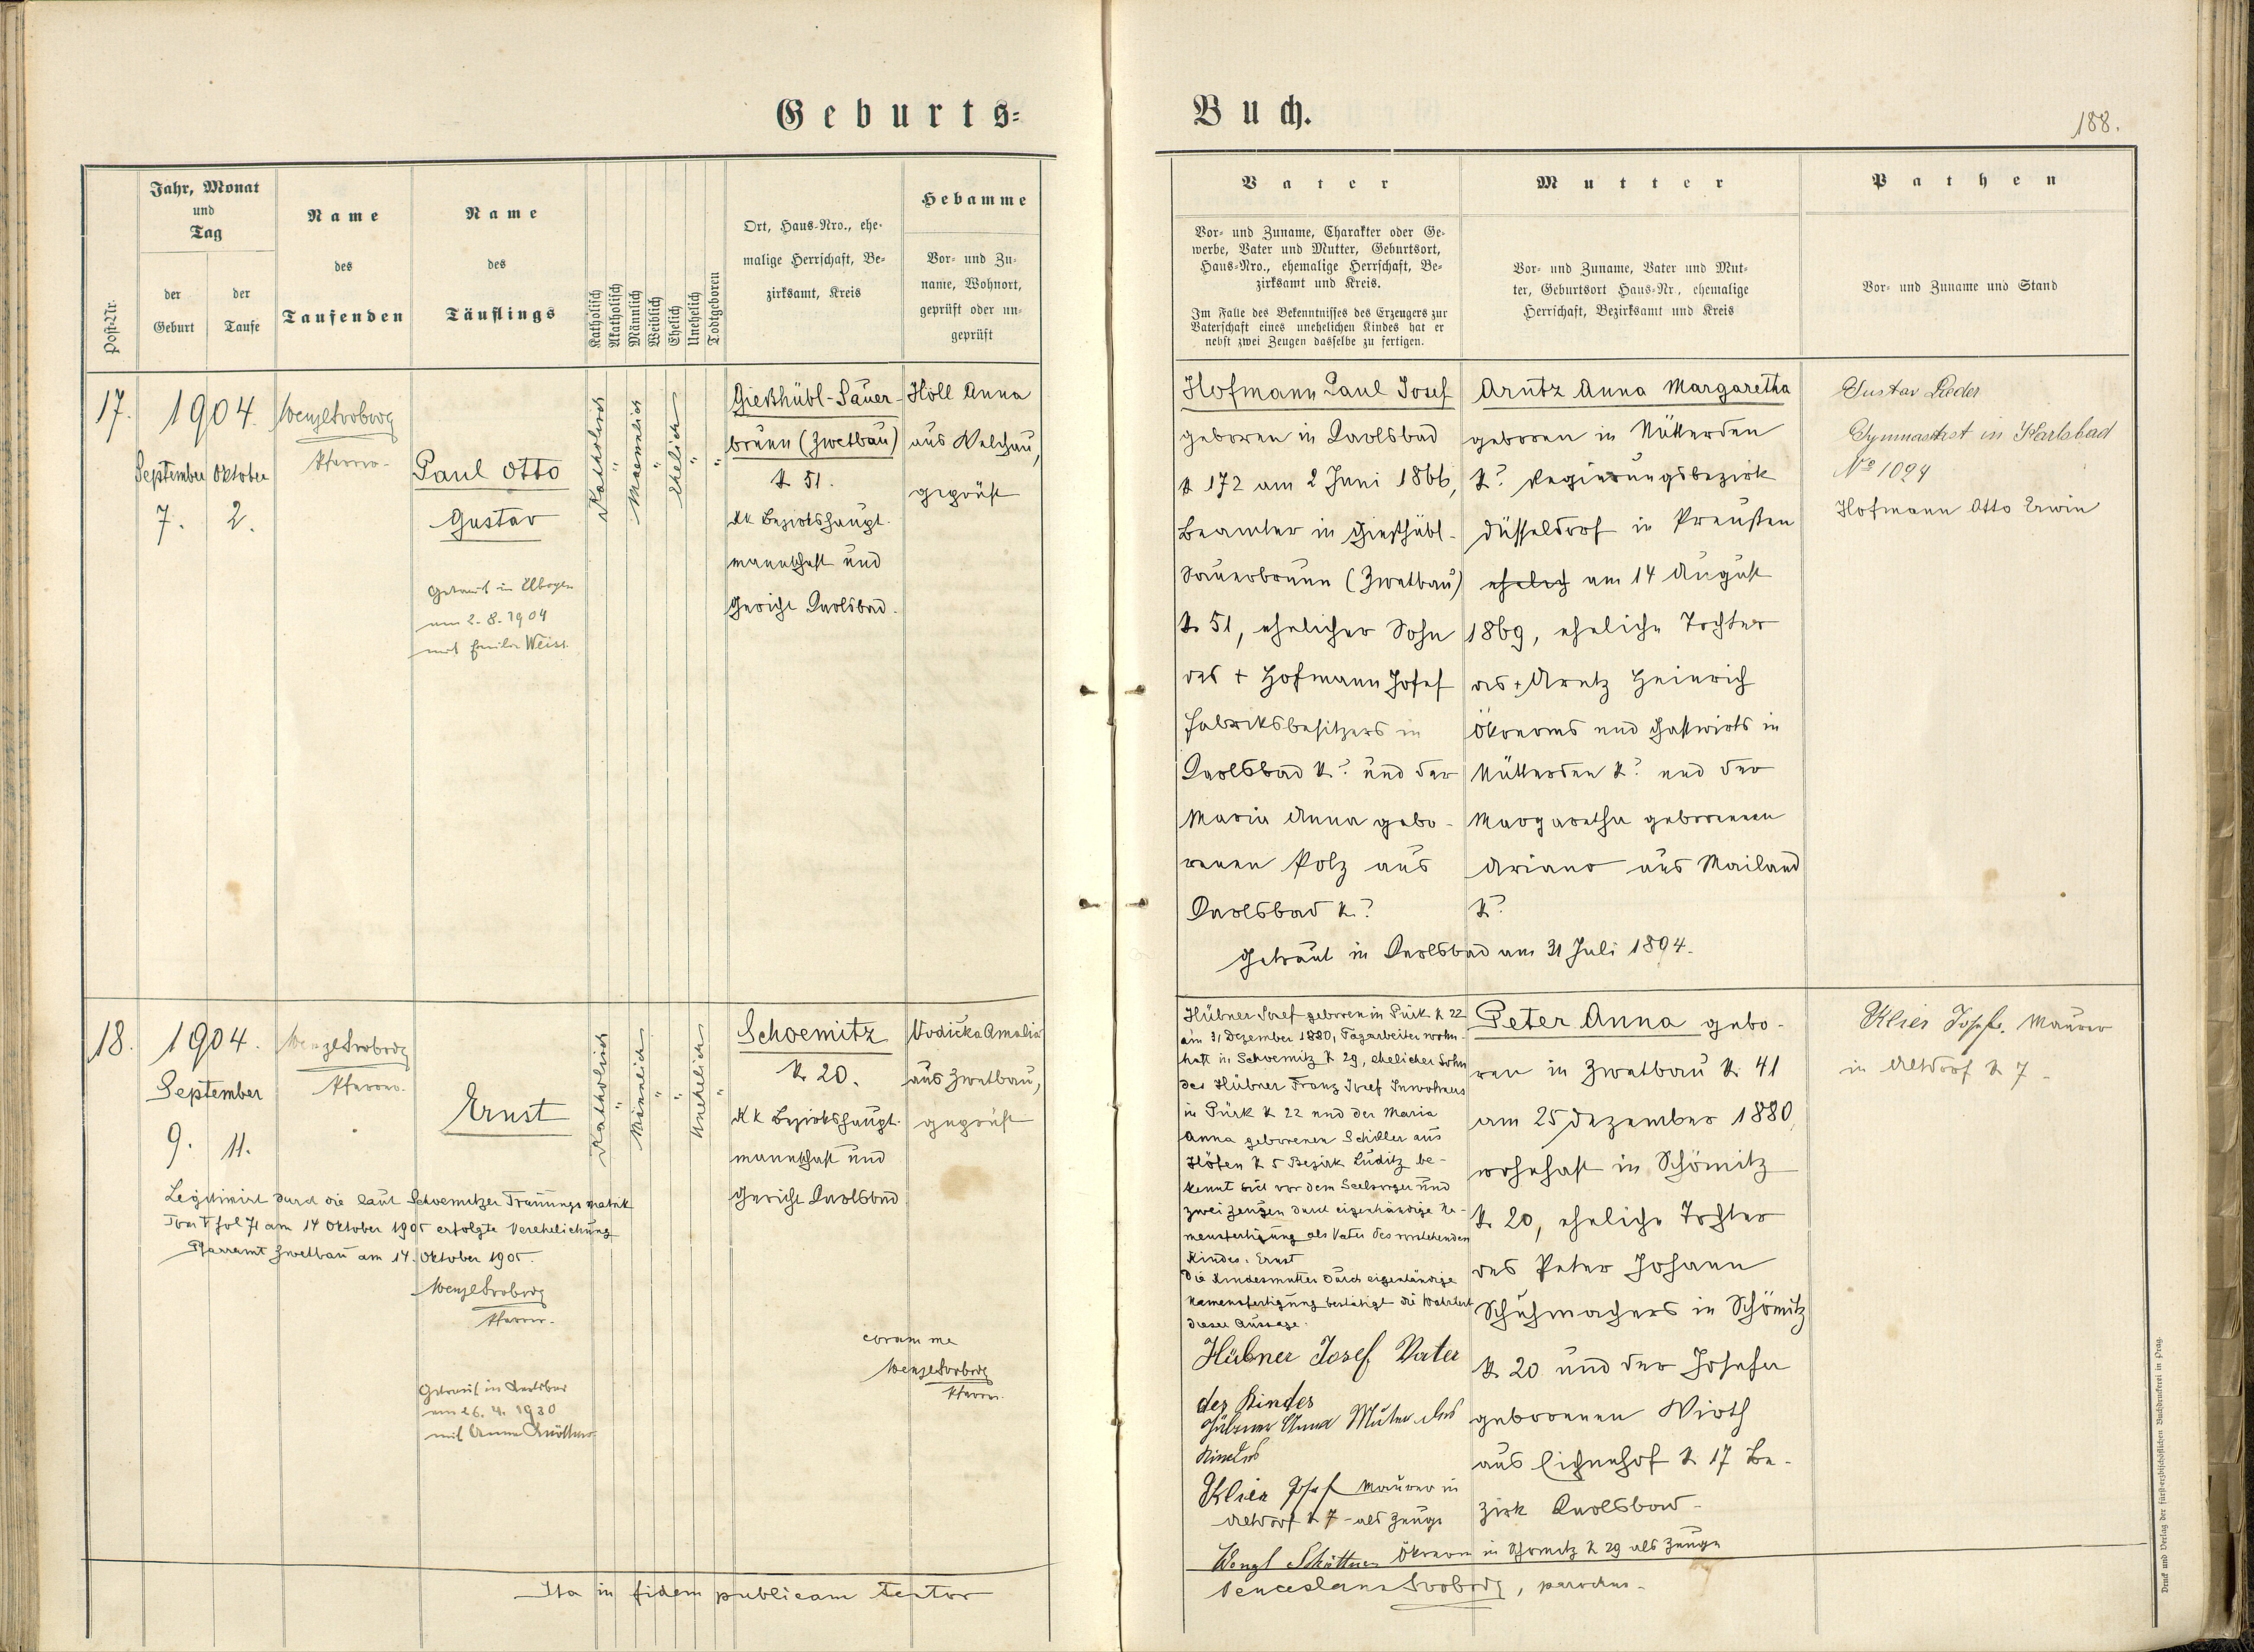 Geburts-
Buch.
188.
Post-Nr.
Jahr, Monat
und
Tag
der
Geburt
der
Taufe
Name
des
Taufenden
Name
des
Täuflings
Katholisch
Akatholisch
Männlich
Weiblich
Ehelich
Unehelich
Todtgeboren
Ort, Haus-Nro., ehe-
malige Herrschaft, Be-
zirksamt, Kreis
Hebamme
Vor- und Zu-
name, Wohnort,
geprüft oder un-
geprüft
Vater
Vor- und Zuname, Charakter oder Ge-
werbe, Vater und Mutter, Geburtsort,
Haus-Nro., ehemalige Herrschaft, Be-
zirksamt und Kreis.
Im Falle des Bekenntnisses des Erzeugers zur
Vaterschaft eines unehelichen Kindes hat er
nebst zwei Zeugen dasselbe zu fertigen.
Mutter
Vor- und Zuname, Vater und Mut-
ter, Geburtsort Haus-Nr., ehemalige
Herrschaft, Bezirksamt und Kreis
Pathen
Vor- und Zuname und Stand
17.
1904.
September
7.
Oktober
2.
Wenzl Svoboda
Pfarrer.
Paul Otto
Gustav
Getraut in Elbogen
am 2. 8. 1904
mit Emilie Weiss.
Katholisch
"
Maennlich
"
Ehelich
"
"
Gießhübl-Sauer-
brunn (Zwetbau)
N 51.
KK Bezirkshaupt-
mannschaft und
Gericht Karlsbad.
Höll Anna
aus Welchau,
geprüft
Hofmann Paul Josef
geboren in Karlsbad
N 172 am 2 Juni 1866,
Beamter in Gießhübl-
Sauerbrunn (Zwetbau)
N. 51, ehelicher Sohn
des + Hofmann Josef
Fabriksbesitzers in
Karlsbad N? und der
Maria Anna gebo-
renen Polz aus
Karlsbad N.?
Arntz Anna Margaretha
geboren in Nütterden
N? Regierungsbezirk
Düsseldorf in Preußen
ehelich am 14 August
1869, eheliche Tochter
des + Arntz Heinrich
Ökonoms und Gastwirts in
Nütterden N? und der
Margaretha geborenen
Ariano aus Mailand
N?
Getraut in Karlsbad am 31 Juli 1894.
Gustav Leder
Gymnasthst in Karlsbad
Nº 1094
Hofmann Otto Erwin
18.
1904.
September
9.
11.
Wenzl Svoboda
Pfarrer.
Ernst
Katholisch
"
Männlich
"
"
Unehelich
"
Schoemitz
N. 20.
KK Bezirkshaupt-
mannschaft und
Gericht Karlsbad
Vodička Amalia
aus Zwetbau,
geprüft
Legitimirt durch die laut Schoemitzer Trauungsmatrik
Tom V fol 71 am 14 Oktober 1905 erfolgte Verehelichung
Pfarramt Zwetbau am 14. Oktober 1905.
Wenzl Svoboda
Pfarrer.
Getraut in Karlsbad
am 26. 4. 1930
mit Anna
coram me
Wenzl Svoboda
Pfarrer.
Hübner Josef geboren in Pürk N 22
am 31 Dezember 1880, Tagarbeiter wohn-
haft in Schoemitz N 29, ehelicher Sohn
des Hübner Franz Josef Inwohners
in Pürk N 22 und der Maria
Anna geborenen Schiller aus
Höfen N 5 Bezirk Luditz be-
kennt sich vor dem Seelsorger und
zwei Zeugen durch eigenhändige Na-
mensfertigung als Vater des vorstehenden
Kindes: Ernst
Die Kindesmutter durch eigenhändige
Namensfertigung bestätigt die Wahrheit
dieser Aussage.
Hübner Josef Vater
des Kindes
Hübner Anna Muter des
Kindes
Klier Josef Maurer in
Altdorf N 7 - als Zeuge
Wenzl Schöttner Ökonom in Schömitz N 29 als Zeuge
Peter Anna gebo-
ren in Zwetbau N. 41
am 25 Dezember 1880,
wohnhaft in Schömitz
N. 20, eheliche Tochter
des Peter Johann
Schuhmachers in Schömitz
N. 20 und der Josefa
geborenen Wirth
aus Eichenhof N 17 Be-
zirk Karlsbad.
Klier Josef, Maurer
in Altdorf N 7.
Ita in fidem publicam testor
Venceslaus Svoboda, parochus.
Druck und Verlag der fürst-erzbischöflichen Buchdruckerei in Prag.